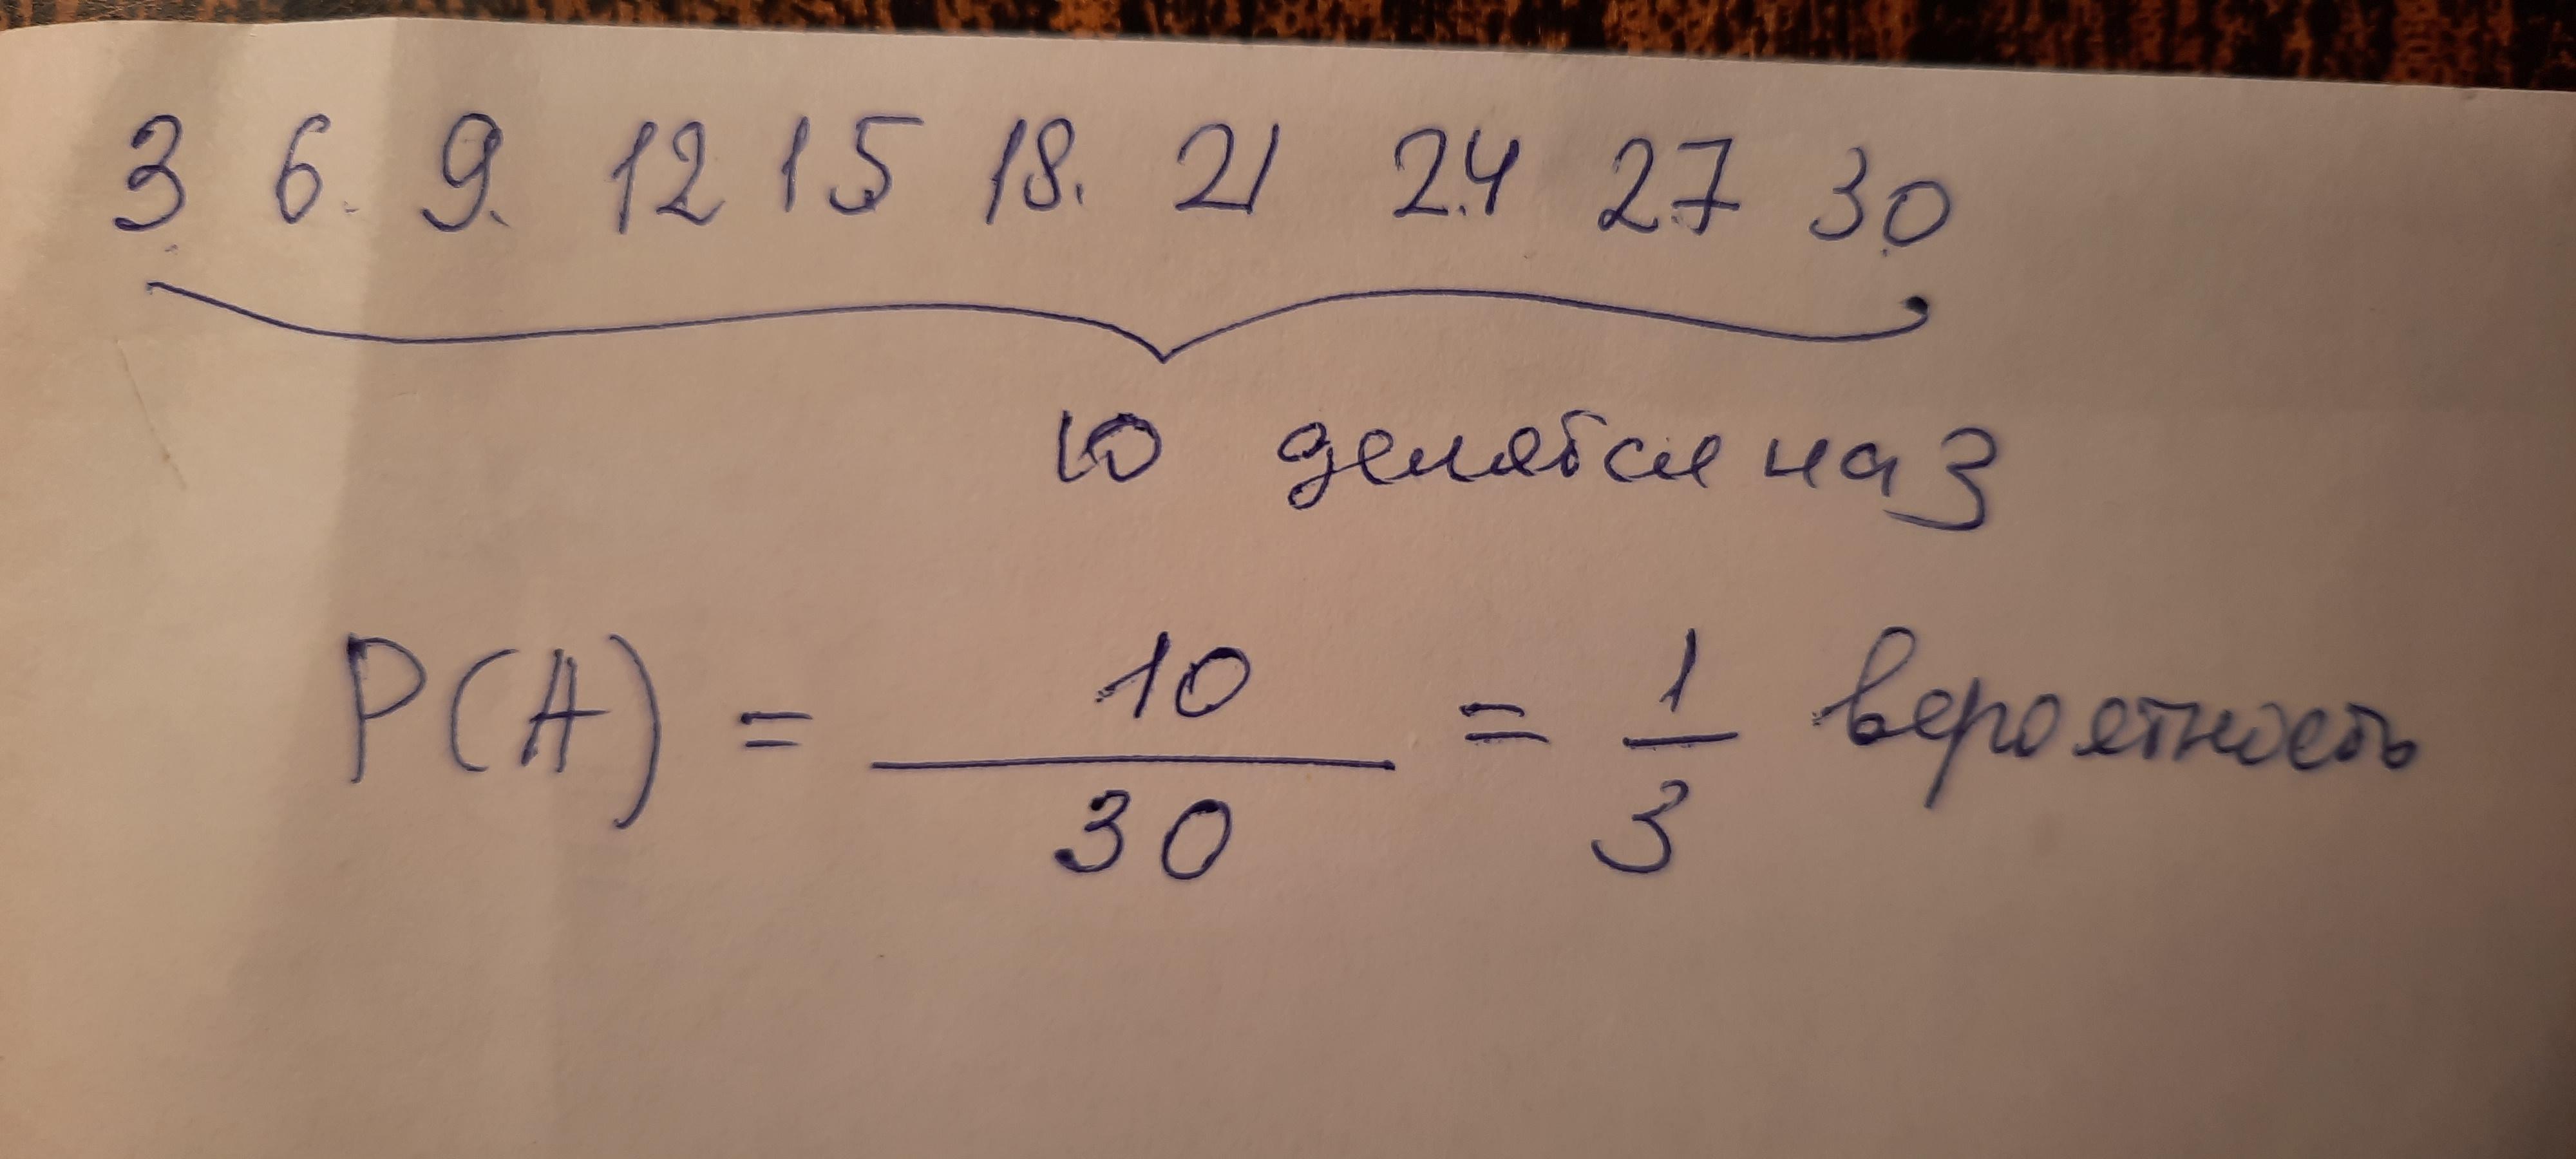 3. 6. 9. 12 15 18. 21 24 27 30
10 делятся на 3
P(A) = 10/30 = 1/3 вероятность